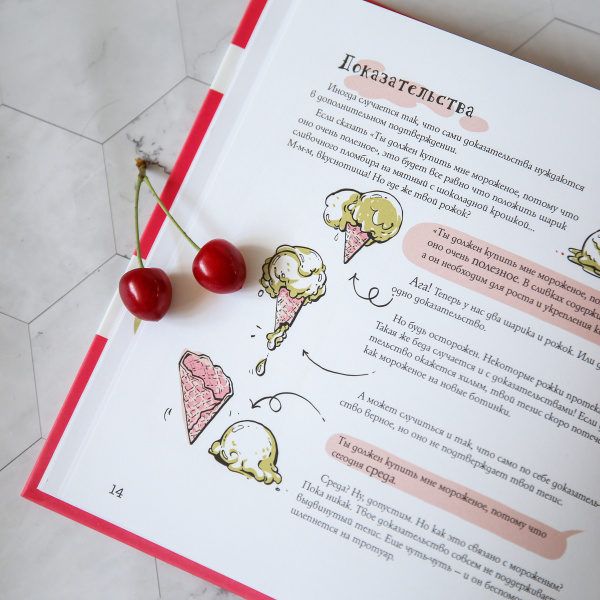 Доказательства
Иногда случается так, что сами доказательства нуждаются
в дополнительном подтверждении.
Если сказать «Ты должен купить мне мороженое, потому что
оно очень полезное», это будет все равно что положить шарик
сливочного пломбира на мятный с шоколадной крошкой...
М-м-м, вкуснотища! Но где же твой рожок?
«Ты должен купить мне мороженое, по
оно очень полезное. В сливках содержи
а он необходим для роста и укрепления
Ага! Теперь у нас два шарика и рожок. Или
одно доказательство.
Но будь осторожен. Некоторые рожки протека
Такая же беда случается и с доказательствами! Если
тельство окажется хилым, твой тезис скоро потече
как мороженое на новые ботинки.
А может случиться и так, что само по себе доказатель-
ство верное, но оно не подтверждает твой тезис.
Ты должен купить мне мороженое, потому что
сегодня среда.
Среда? Ну, допустим. Но как это связано с мороженым?
Пока никак. Твое доказательство совсем не поддерживает
выдвинутый тезис. Еще чуть-чуть — и он беспом
шлепнется на тротуар.
14